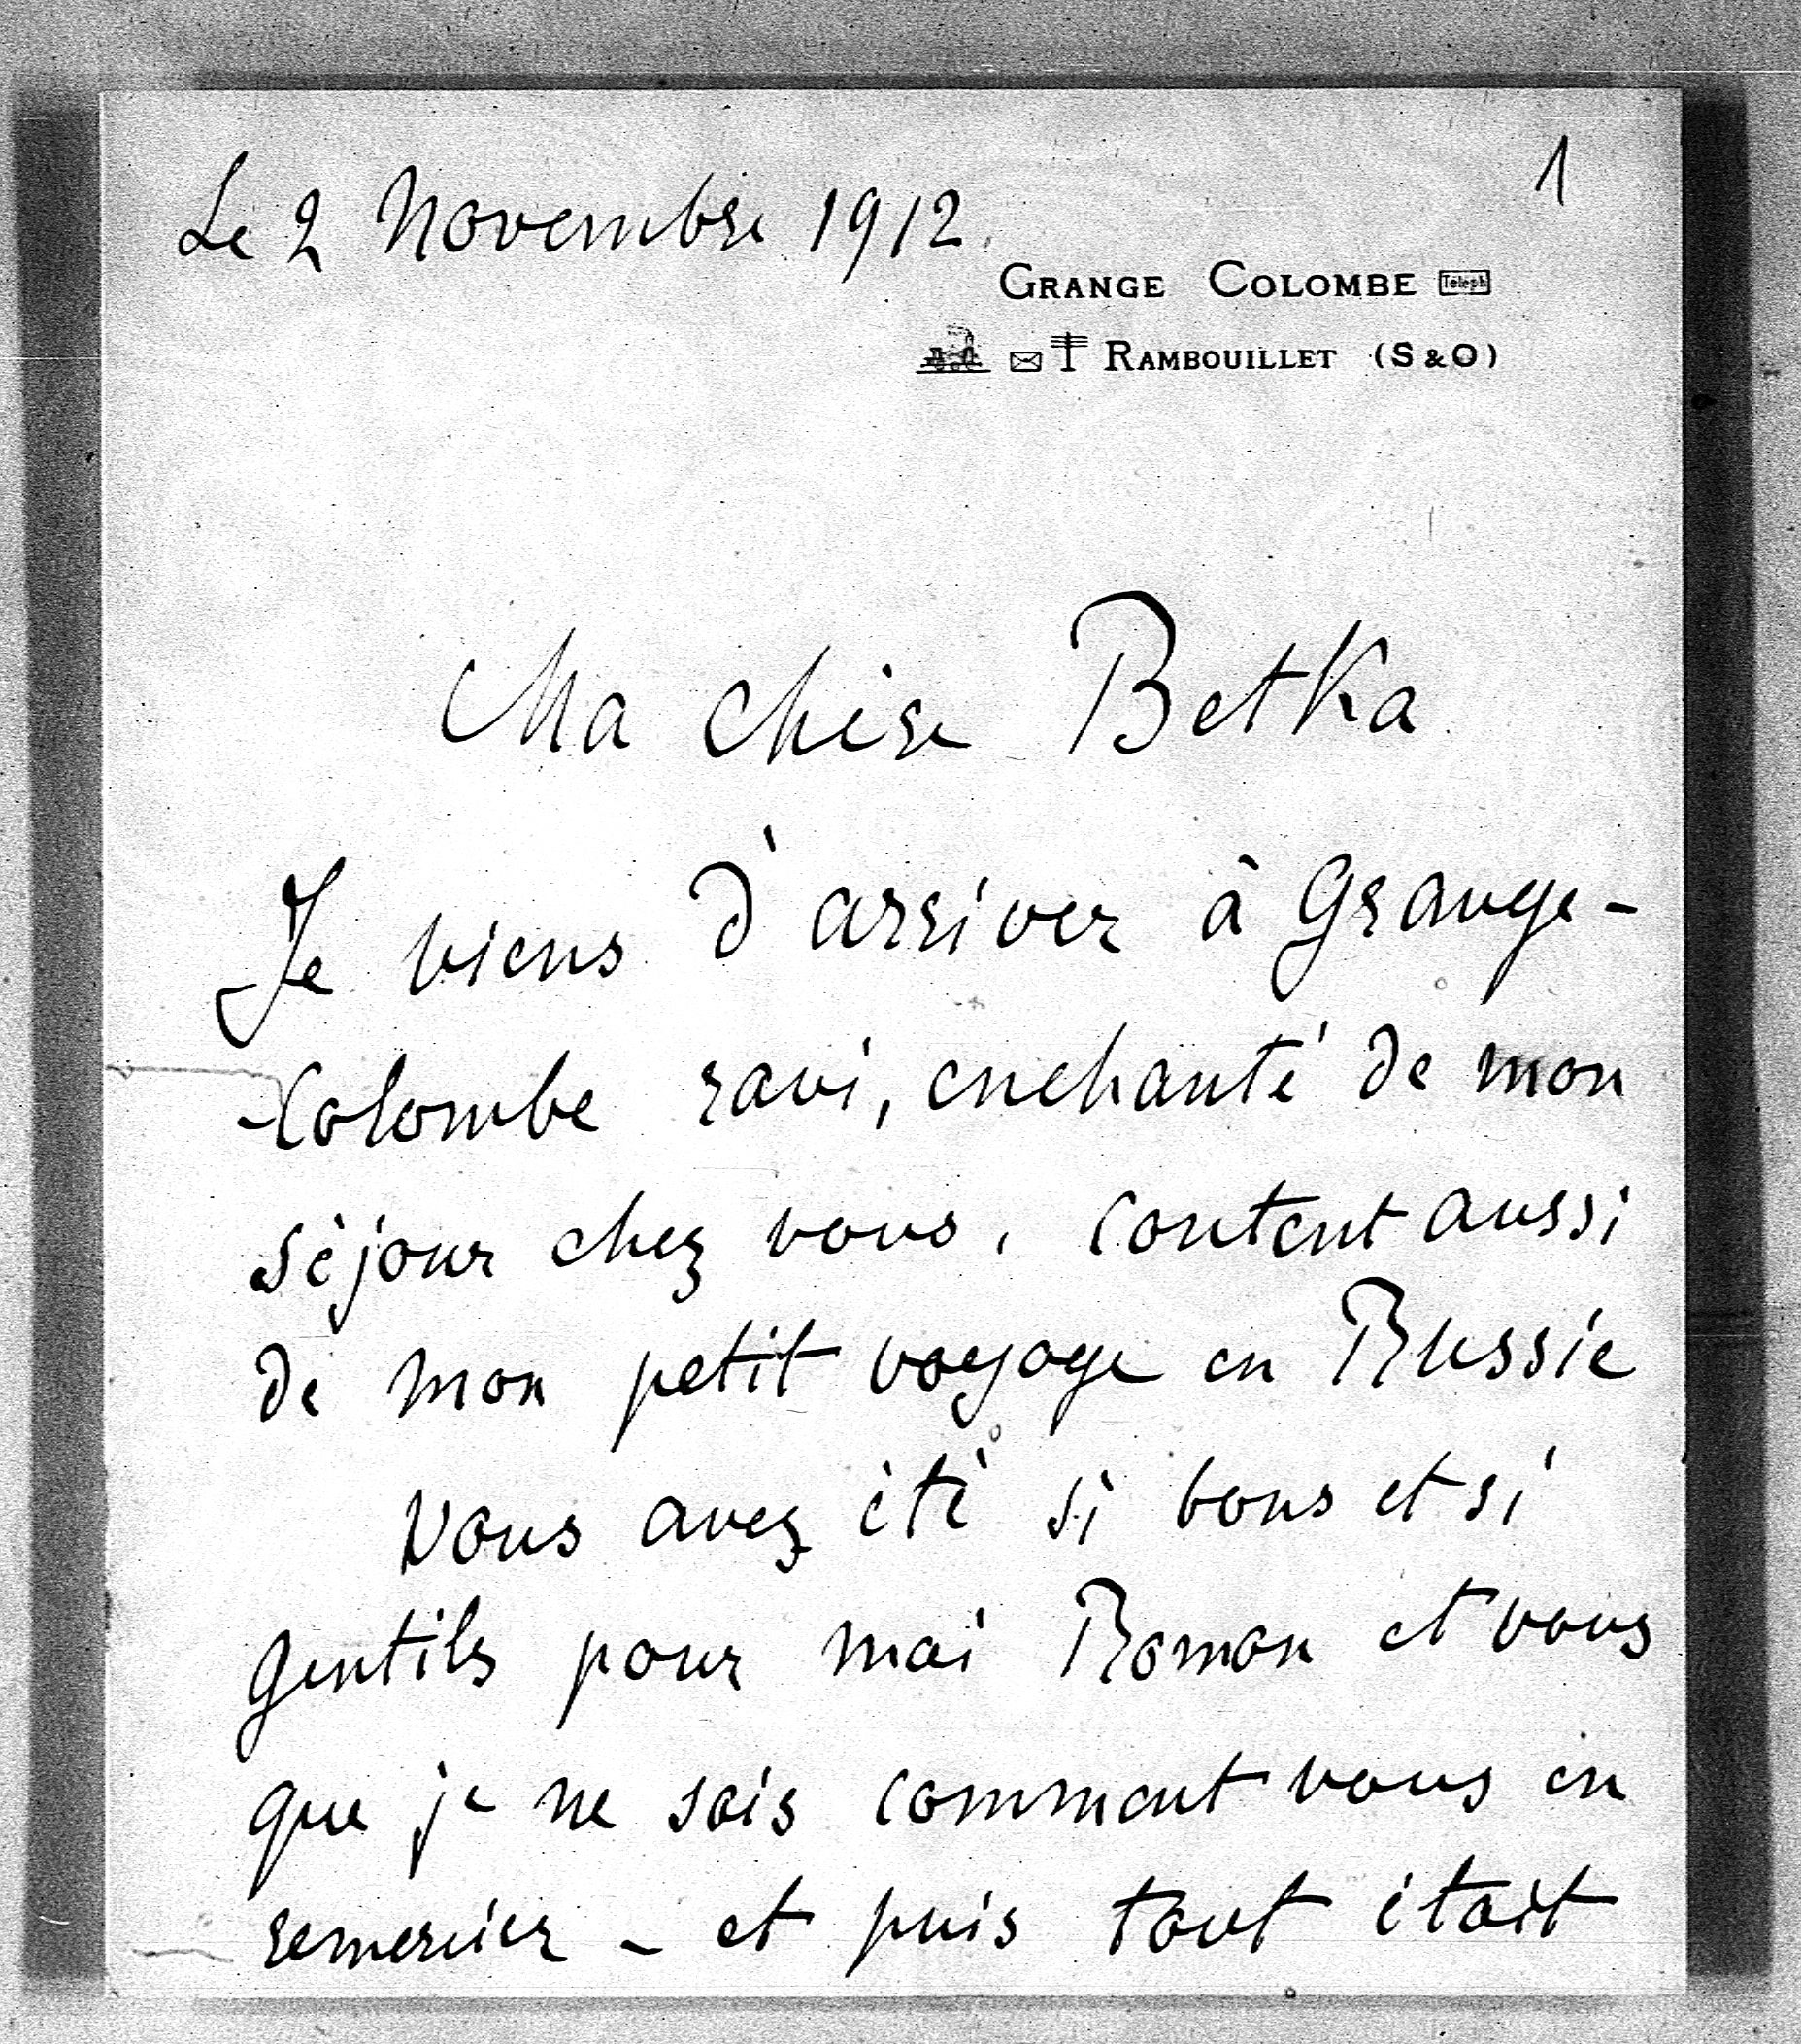 1
Le 2 Novembre 1912.
GRANGE COLOMBE Téleph
RAMBOUILLET (S & O)
Ma chère Betka
Je viens d'arriver à Grange-
-Colombe ravi, enchanté de mon
séjour chez vous, content aussi
de mon petit voyage en Russie
Vous avez été si bons et si
gentils pour moi Roman et vous
que je ne sais comment vous en
remercier - et puis tout était